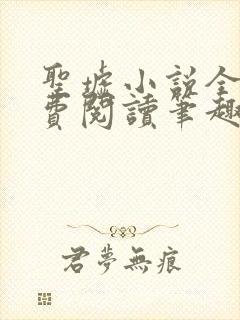 聖墟小説全
費閱讀筆趣
君夢無痕